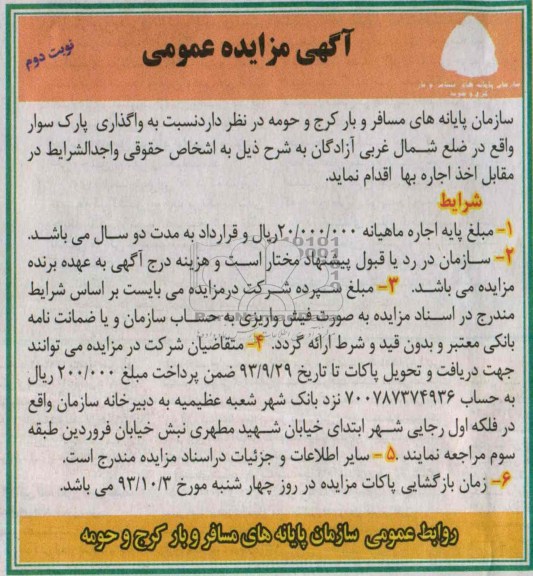 آگهی مزایده عمومی
نوبت دوم
سازمان پایانه های مسافر و بار
کرج و حومه
سازمان پایانه های مسافر و بار کرج و حومه در نظر داردنسبت به واگذاری پارک سوار
واقع در ضلع شمال غربی آزادگان به شرح ذیل به اشخاص حقوقی واجدالشرایط در
مقابل اخذ اجاره بها اقدام نماید.
شرایط
۱- مبلغ پایه اجاره ماهیانه ۲۰/۰۰۰/۰۰۰ریال و قرارداد به مدت دو سال می باشد.
۲- سازمان در رد یا قبول پیشنهاد مختار است و هزینه درج آگهی به عهده برنده
مزایده می باشد. ۳- مبلغ سپرده شرکت درمزایده می بایست بر اساس شرایط
مندرج در اسناد مزایده به صورت فیش واریزی به حساب سازمان و یا ضمانت نامه
بانکی معتبر و بدون قید و شرط ارائه گردد. ۴- متقاضیان شرکت در مزایده می توانند
جهت دریافت و تحویل پاکات تا تاریخ ۹۳/۹/۲۹ ضمن پرداخت مبلغ ۲۰۰/۰۰۰ ریال
به حساب ۷۰۰۷۸۷۳۷۴۹۳۶ نزد بانک شهر شعبه عظیمیه به دبیرخانه سازمان واقع
در فلکه اول رجایی شهر ابتدای خیابان شهید مطهری نبش خیابان فروردین طبقه
سوم مراجعه نمایند .۵- سایر اطلاعات و جزئیات دراسناد مزایده مندرج است.
۶- زمان بازگشایی پاکات مزایده در روز چهار شنبه مورخ ۹۳/۱۰/۳ می باشد.
روابط عمومی سازمان پایانه های مسافر و بار کرج و حومه